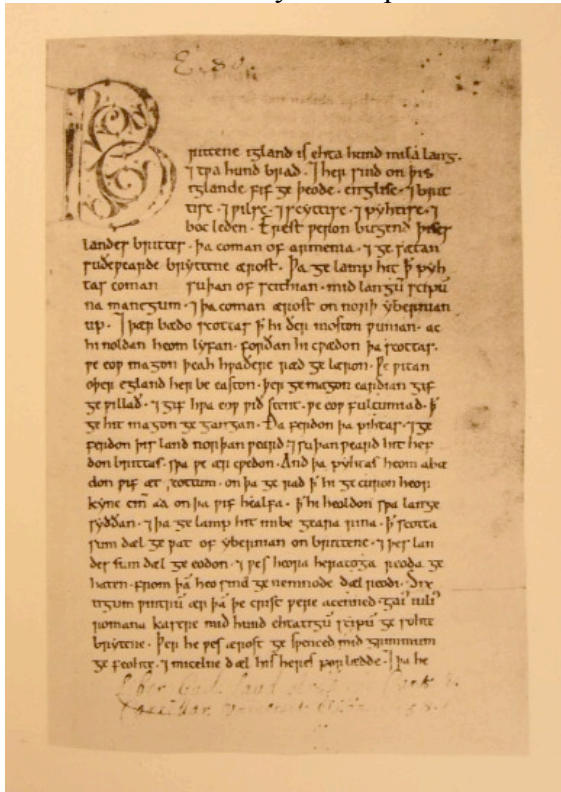 Brittene igland is ehta hund mila lang.
⁊ tpa hund brad. ⁊ her sind on þis
iglande fif ge þeode. englisc. ⁊ brit
tisc. ⁊ pilsc. ⁊ scyttisc. ⁊ pyhtisc. ⁊
boc leden. Erest peron bugend þises
landes brittes. þa coman of armenia. ⁊ ge sætan
suðepearde bryttene ærost. Þa ge lamp hit ꝥ pyh
tas coman suþan of scithian. mid langū scipū
na manegum. ⁊ þa coman ærost on norþ ybernian
up. ⁊ þær bædo scottas ꝥ hi ðer moston punian. ac
hi noldan heom lyfan. forðan hi cpædon þa scottas.
pe eop magon þeah hpaðere ræd ge læron. Ƿe pitan
oþer egland her be easton. þer ge magon eardian gif
ge pillað. ⁊ gif hpa eop pið stent. pe eop fultumiað. ꝥ
ge hit magon ge gangan. Ða ferdon þa pihtas. ⁊ ge
ferdon þis land norþan peard. ⁊ suþan peard hit hef
don brittas. spa pe ær cpedon. And þa pyhtas heom abæ
don pif æt scottum. on þa ge rad ꝥ hi ge curon heor
kyne cin aa on þa pif healfa. ꝥ hi heoldon spa lange
syððan. ⁊ þa ge lamp hit imbe geara rina. ꝥ scotta
sum dæl ge pat of ybernian on brittene. ⁊ þes lan
des sum dæl ge eodon. ⁊ pes heora heratoga reoda ge
haten. from þā heo sind ge nemnode dæl reodi. Six
tigum pintrū ær þā þe crist pere acenned. gai' iuli'
romana kasere mid hund ehtatigū scipū ge sohte
brytene. Þer he pes ærost ge spenced mid grimmum
ge feohte. ⁊ micelne dæl his heres forlædde. ⁊ þa he